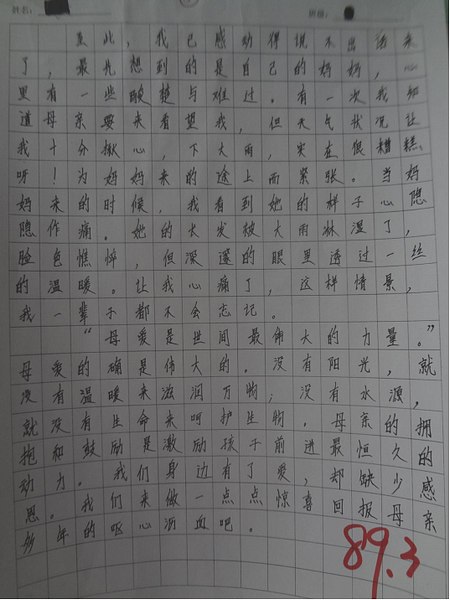 姓名:
班级:
至此,我已感动得说不出话来
了,最先想到的是自己的妈妈,心
里有一些酸楚与难过。有一次我知
道母亲要来看望我,但天气状况让
我十分揪心,下大雨,实在很糟糕
呀!为妈妈来的途上而紧张。当妈
妈来的时候,我看到她的样子心隐
隐作痛。她的头发被大雨淋湿了,
脸色憔悴,但深邃的眼里透过一丝
的温暖。让我心痛了,这样情景,
我一辈子都不会忘记。
“母爱是世间最伟大的力量。”
母爱的确是伟大的。没有阳光,就
没有温暖来滋润万物;没有水源,
就没有生命来呵护生物。母亲的拥
抱和鼓励是激励孩子前进最恒久的
动力。我们身边有了爱,却缺少感
恩。我们来做一点点惊喜回报母亲
多年的呕心沥血吧。
89.3